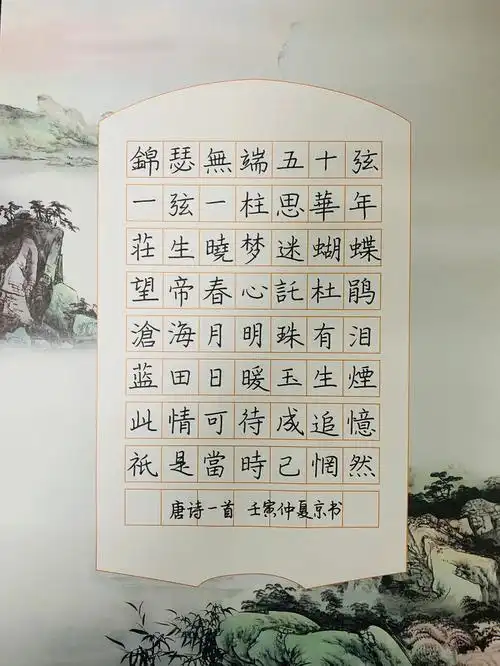 錦瑟無端五十弦
一弦一柱思華年
荘生曉梦迷蝴蝶
望帝春心託杜鹃
滄海月明珠有泪
蓝田日暖玉生煙
此情可待成追憶
祇是當時已惘然
唐诗一首 壬寅仲夏京书